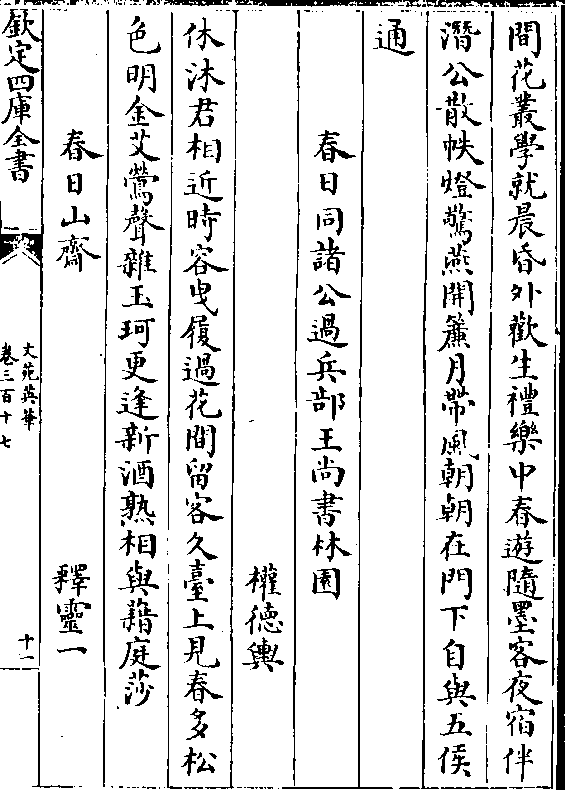 間花叢學就晨昏外歡生禮樂中春遊隨墨客夜宿伴
潛公散帙燈驚燕開簾月帶風朝朝在門下自與五侯
通
春日同諸公過兵部王尚書林園
權德輿
休沐君相近時容曳履過花間留客久臺上見春多松
色明金艾鶯聲雜玉珂更逢新酒熟相與藉庭莎
春日山齋
釋靈一
欽定四庫全書
文苑英華
卷三百十七
十一